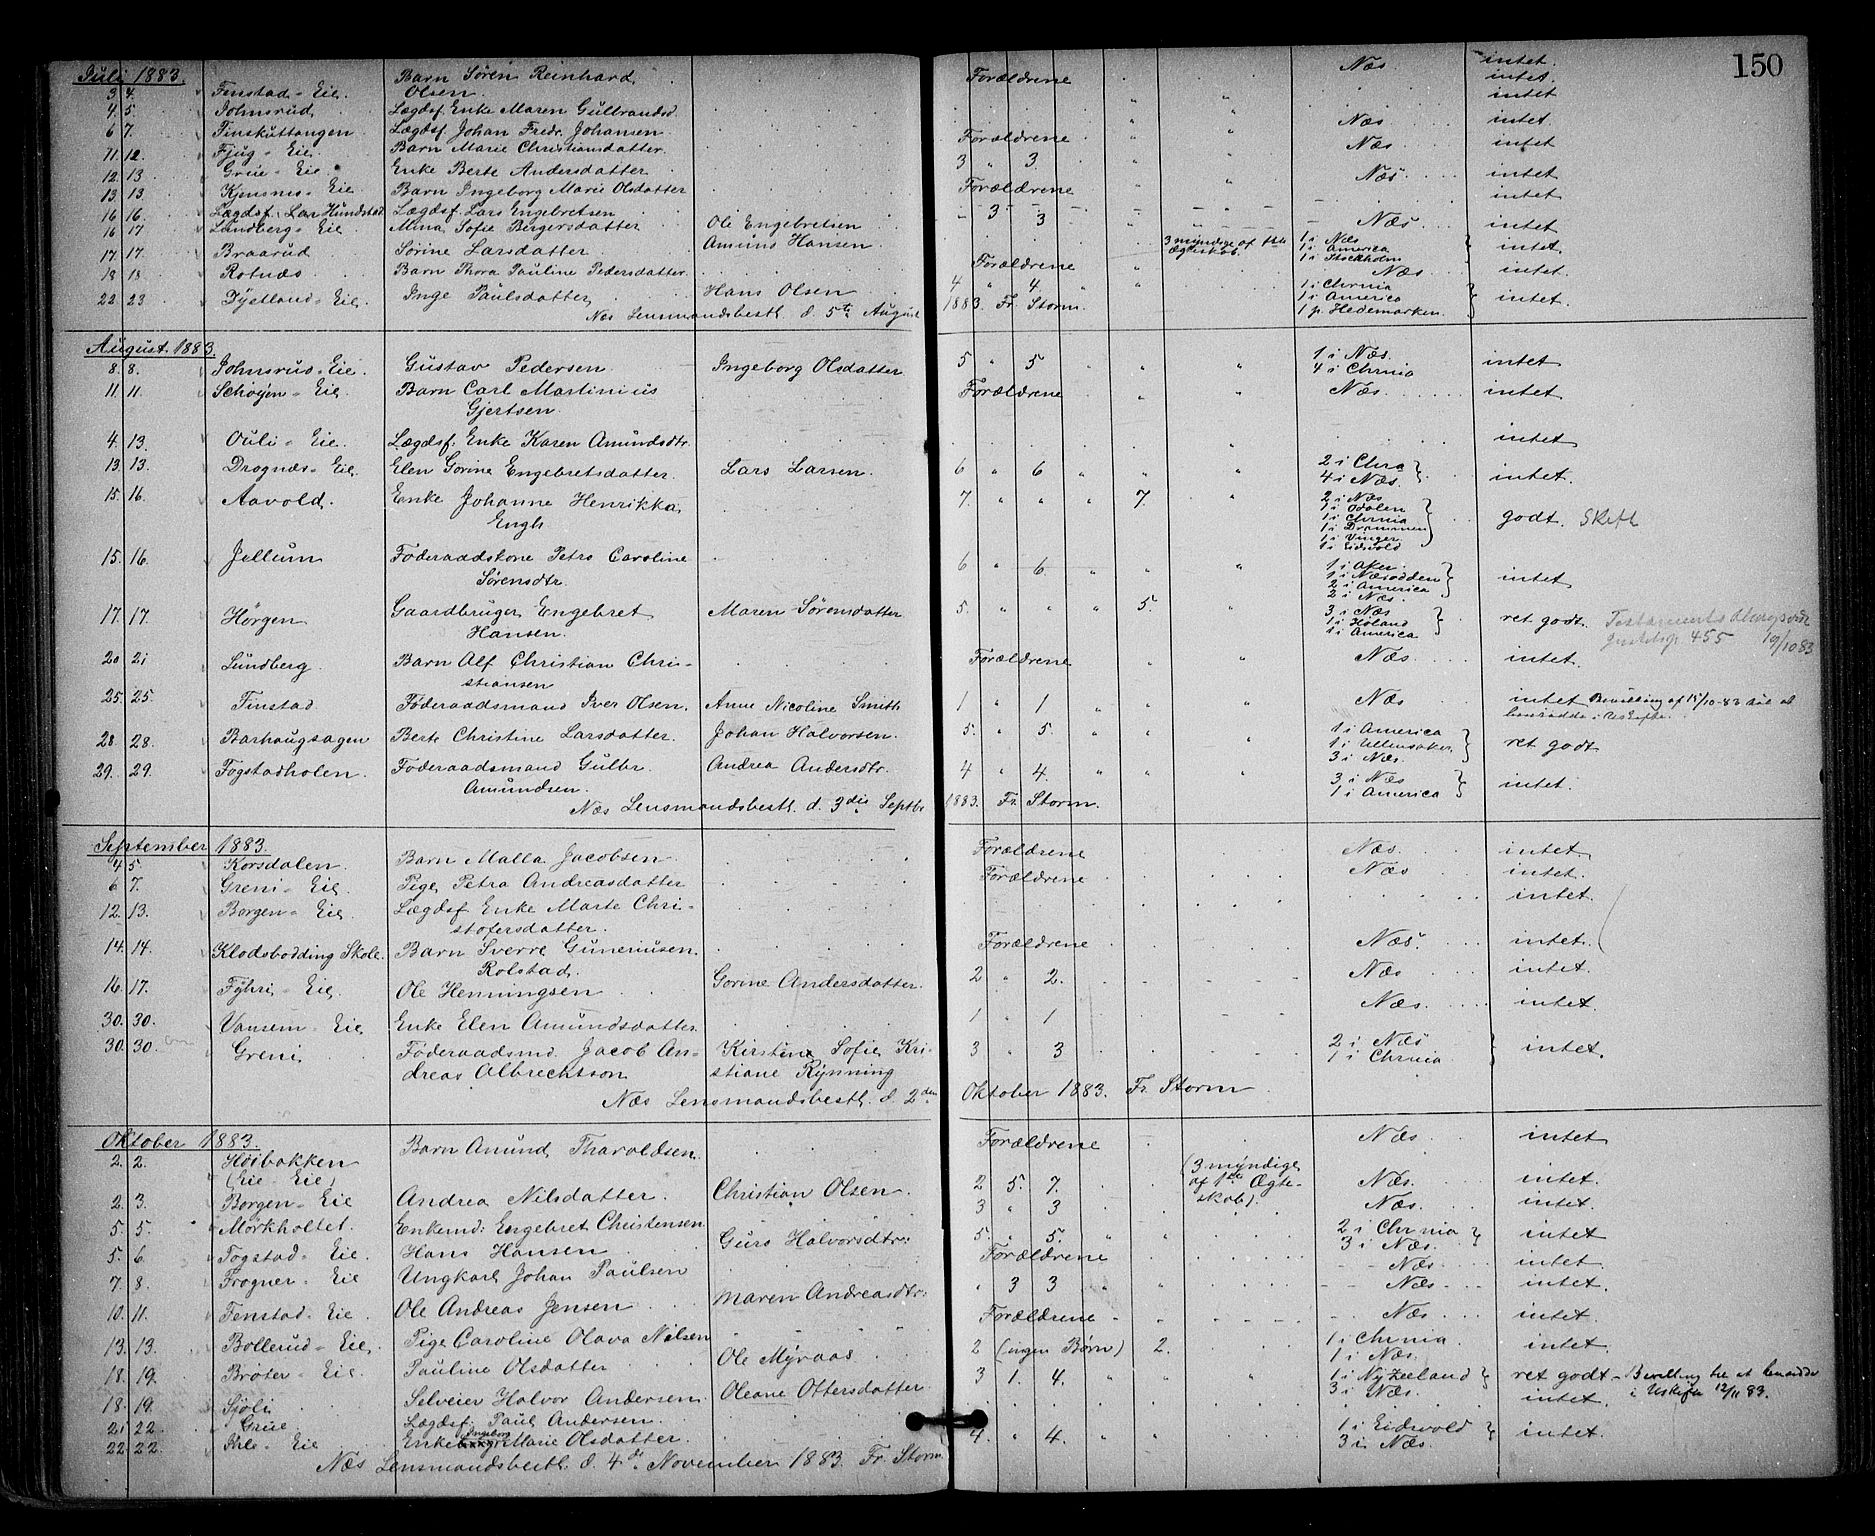 150
Juli 1883.
Barn Sören Reinhard Forældrene Næs intet.
3 4. Fenstad - Eie. Olsen. intet.
4. 5. Johnsrud, Lægdsf. Enke Maren Gulbrandsd. intet
6 7. Finskuttangen Lægdsf. Johan Fredr. Johansen Næs intet.
11. 12. Fjug - Eie. Barn Marie Christiansdatter. Forældrene Næs intet
12. 13 Grue - Eie. Enke Berte Andersdatter 3 " 3. Næs intet
13 13. Kjusnes - Eie Barn Ingeborg Marie Olsdatter Forældrene intet.
16 16. Lægdsf. Lars Hundstad Lægdsf. Lars Engebretsen
16 17 Lundberg - Eie. Mina Sofie Birgersdatter Ole Engebretsen 3 3 Næs intet
17 17. Braarud Sörine Larsdatter Amund Hansen 3 myndige af 1ste Ægteskab. 1 i Næs 1 i America 1 i Stockholm intet.
18 18 Rotnæs Barn Thora Pauline Pedersdatter Forældrene Næs intet.
22 23 Dystland - Eie. Inge Paulsdatter Hans Olsen 4 " 4. 1 i Chrnia 1 i America 1 p. Hedemarken. intet.
Næs Lensmandsbestl. d. 5te August 1883. Fr. Storm.
August 1883.
8. 8. Johnsrud - Eie. Gustav Pedersen Ingeborg Olsdatter 5 " 5 1 i Næs. 4 i Chrnia intet
11. 11. Schøyen - Eie. Barn Carl Martinius Forældrene Næs. intet
Gjertsen.
4. 13. Ouli - Eie. Lægdsf. Enke Karen Amundsdtr. intet
13. 13. Drognæs - Eie. Elen Gorine Engebretsdatter. Lars Larsen. 6 " 6 2 i Chra 4 i Næs. intet.
15. 16. Aavold. Enke Johanne Henrikka 7. " 7. 2 i Næs 1 i Odalen 1 i Chrnia 1 i Drammen 1 i Vinger 1 i Eidsvold godt. Skift
Engh
15. 16. Jellum Föderaadskone Petro Caroline 6 " 6 1 i Aker. 1 i Næsodden 2 i America 2 i Næs. intet
Sörensdtr.
17. 17. Hörgen Gaardbruger Engebret Maren Sörensdatter 5. " 5. 3 i Næs 1 i Höland 1 i America ret godt. Testaments
Hansen. 455 19/10 83
20 21 Lundberg Barn Alf Christian Chri- Forældrene Næs intet.
stiansen
25. 25. Finstad Föderaadsmand Iver Olsen. Anne Nicoline Smith 1 " 1 Næs intet Bevilling af 15/10-83 til at
hensidde i Uskifte.
28 28. Barhaugsagen Berte Christine Larsdatter. Johan Halvorsen. 5. " 5. 1 i America 1 i Ullensaker 3 i Næs. ret godt
29. 29. Fogstadholen. Föderaadsmand Gulbr. Andrea Andersdtr. 4 " 4. 3 i Næs 1 i America intet.
Amundsen.
Næs Lensmandsbestl. d. 3die Septbr 1883. Fr. Storm.
September 1883.
4 5 Korsdalen. Barn Malla Jacobsen Forældrene Næs. intet.
6 7. Greni - Eie. Pige Petra Andreasdatter Forældrene Næs intet.
12. 13. Borgen - Eie. Lægdsf. Enke Marte Chri- intet.
stofersdatter.
14. 14. Klodsbodding Skole. Barn Sverre Guneriusen Forældrene Næs. intet.
Rolstad.
16. 17. Fyhri - Eie. Ole Henningsen Gorine Andersdatter. 2 " 2. Næs intet.
30. 30. Vansem - Eie Enke Elen Amundsdatter 1 " 1 Næs. intet
30. 30. Greni Föderaadsmd. Jacob An- Kirstine Sofie Kri- 3 " 3 2 i Næs 1 i Chrnia intet.
dreas Albrechtson stiane Rynning
Næs Lensmandsbestl. d. 2den Oktober 1883. Fr. Storm
Oktober 1883.
2. 2. Höibakken Barn Amund Tharoldsen. Forældrene Næs. intet
(Eie - Eie)
2. 3. Borgen - Eie Andrea Nilsdatter. Christian Olsen. 2 5. 7. (3 myndige af 1ste Ægteskab). Næs. intet.
5. 5. Mörkholtet. Enkemd: Engebret Christensen 3 " 3 Næs. intet.
5. 6. Fogstad - Eie. Hans Hansen Guro Halvorsdtr: 5. " 5. 2 i Chrnia 3 i Næs. intet
7. 8. Frogner - Eie Ungkarl Johan Paulsen Forældrene Næs. intet
10. 11. Fenstad - Eie Ole Andreas Jensen Maren Andreasdtr: " 3 3 Næs. intet.
13. 13. Bollerud - Eie. Pige Caroline Olava Nilsen Forældrene Næs intet.
18. 19. Bröter - Eie. Pauline Olsdatter Ole Myraas 2 (ingen Børn) 2. 1 i Chrnia. 1 i Næs. intet.
18. 19. Sjöli Selveier Halvor Andersen Oleane Ottersdatter 3 1. 4. 1 i NyZeeland 3 i Næs. ret godt - Bevilling til at hensidde
i Uskifte 12/11 83.
21 22. Grue Lægdsf. Paul Andersen intet.
22. 22. - Eie Enke Ingeborg Marie Olsdatter. 4. " 4. 1 i Eidsvold 3 i Næs. intet.
Næs Lensmandsbestl. d. 4de November 1883. Fr. Storm